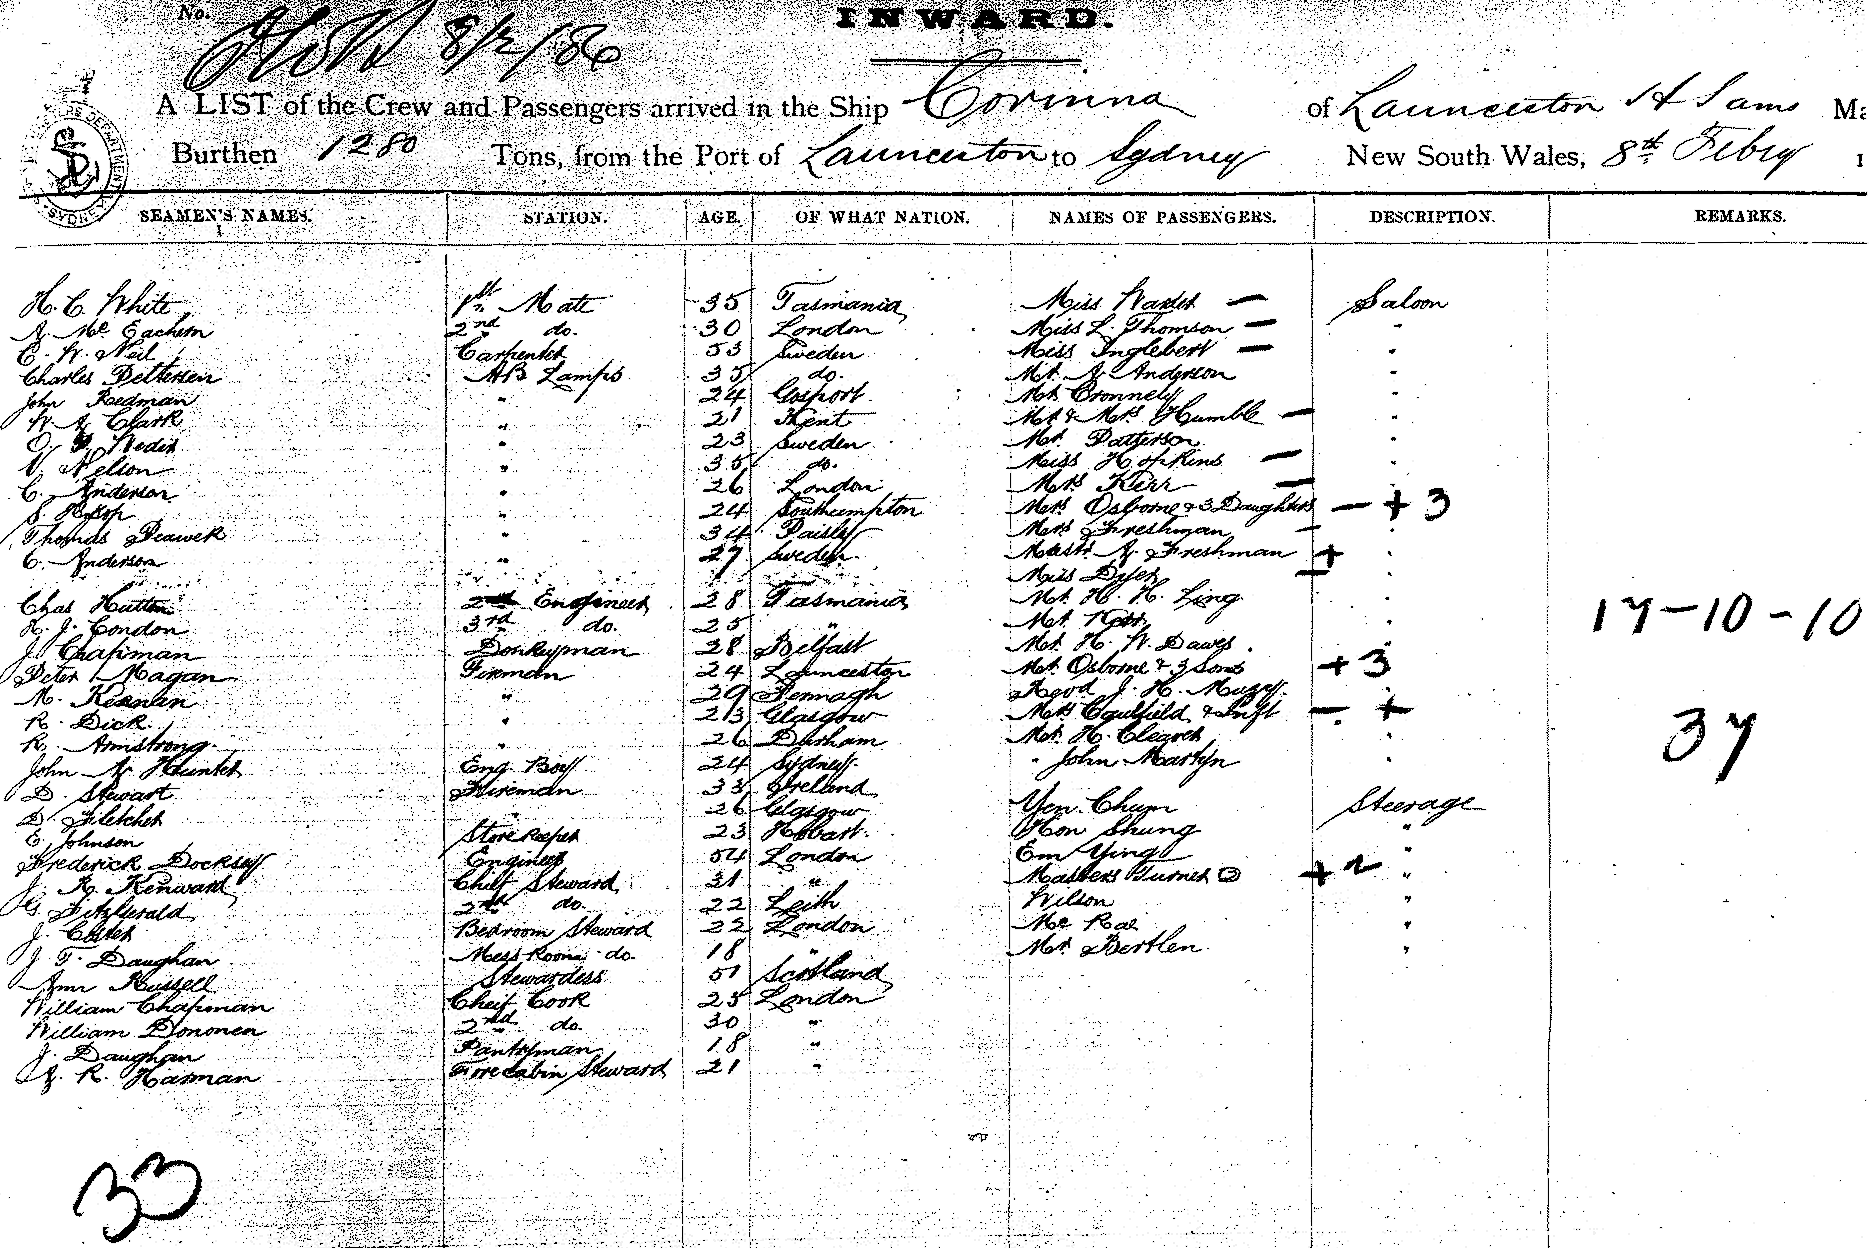 No.
8/2/86
INWARD.
A LIST of the Crew and Passengers arrived in the Ship Corinna of Launceston A Sams Ma
Burthen 1280 Tons, from the Port of Launceston to Sydney New South Wales, 8th Febry 1
SYDNEY
SEAMEN'S NAMES. STATION. AGE. OF WHAT NATION. NAMES OF PASSENGERS. DESCRIPTION. REMARKS.
H. C. White 1st Mate 35 Tasmania Miss — Saloon
A. Mc Eachern 2nd do. 30 London Miss L. Thomson — "
C. W. Neil Carpenter 53 Sweden Miss Inglebert — "
Charles Pettersen AB Lamps 35 do. Mr. A. Anderson "
John Redman " 24 Gosport Mr. Cronnely "
W A Clark " 21 Kent Mr & Mrs Humble — "
" 23 Sweden Mr. Patterson "
Nelson " 35 do. Miss Hopkins — "
C. Anderson " 26 London Mrs Kerr —
S Hysop " 24 Southampton Mrs Osborne & 3 Daughters — + 3
Thomas " 34 Paisley Mrs Freshman — "
C. Anderson " 27 Sweden Mastr A. Freshman + "
Miss Dyer — "
Chas Hutton 2nd Engineer 28 Tasmania Mr. H. H. Ling "
J. Condon 3rd do. 25 " Mr Kerr "
J. Chapman Donkeyman 28 Belfast Mr. H. W. Dawes. "
Peter Magan Fireman 24 Launceston Mr. Osborne & 3 Sons + 3
M. Keenan " 29 Revd J. H.
R. Dick " 23 Glasgow Mrs Caulfield & Inft — +
R. Armstrong " 26 Durham Mr. H. Cleaver "
John A Hunter Eng. Boy 24 Sydney " John Martyn "
D. Stewart Fireman 33 Ireland
D Fletcher " 26 Glasgow Yen Chum Steerage
E. Johnson Storekeeper 23 Hobart. Hon Shung "
Frederick Docksey Engineer 54 London Em Ying "
J. R. Kenward Chief Steward 31 " Masters Turner 2 + 2 "
G. Fitzgerald 2nd do. 22 Leith Wilson "
J. Bedroom Steward 22 London Mc Rae "
J T. Daughan Mess Room do. 18 " Mr. Bertlen "
Ann Russell Stewardess 51 Scotland
William Chapman Cheif Cook 25 London
William Dononen 2nd do. 30 "
J. Daughan Pantryman 18 "
A. R. Harman Forecabin Steward 21 "
17-10-10
37
33